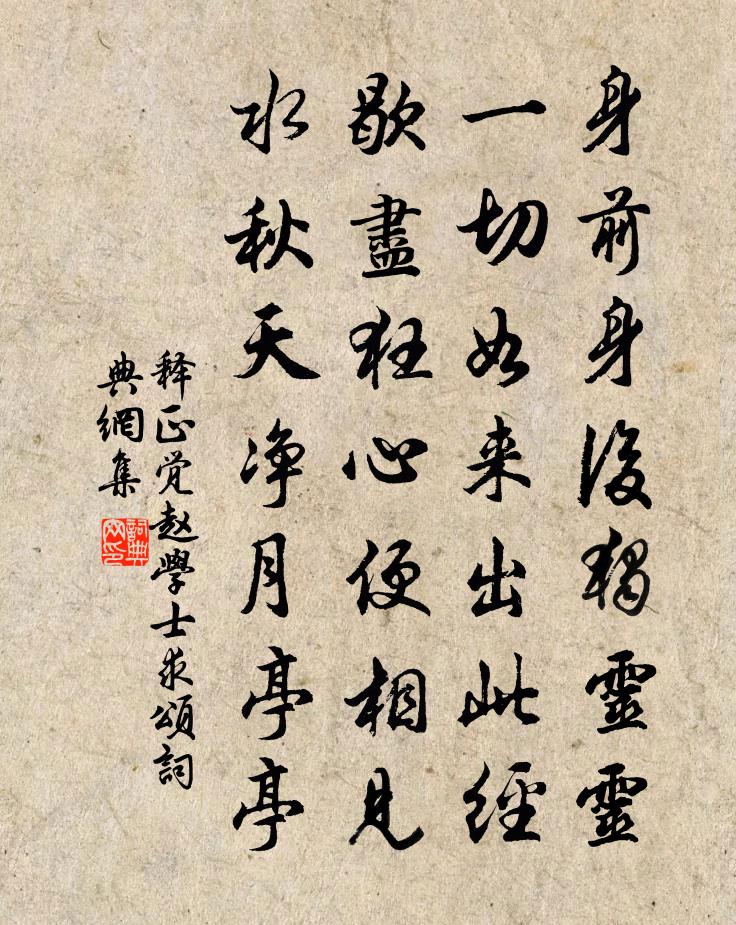 身前身後獨靈靈
一切如来出此經
歇盡狂心便相見
水秋天净月亭亭
释正觉赵學士求頌詞
典網集
詞典
网印